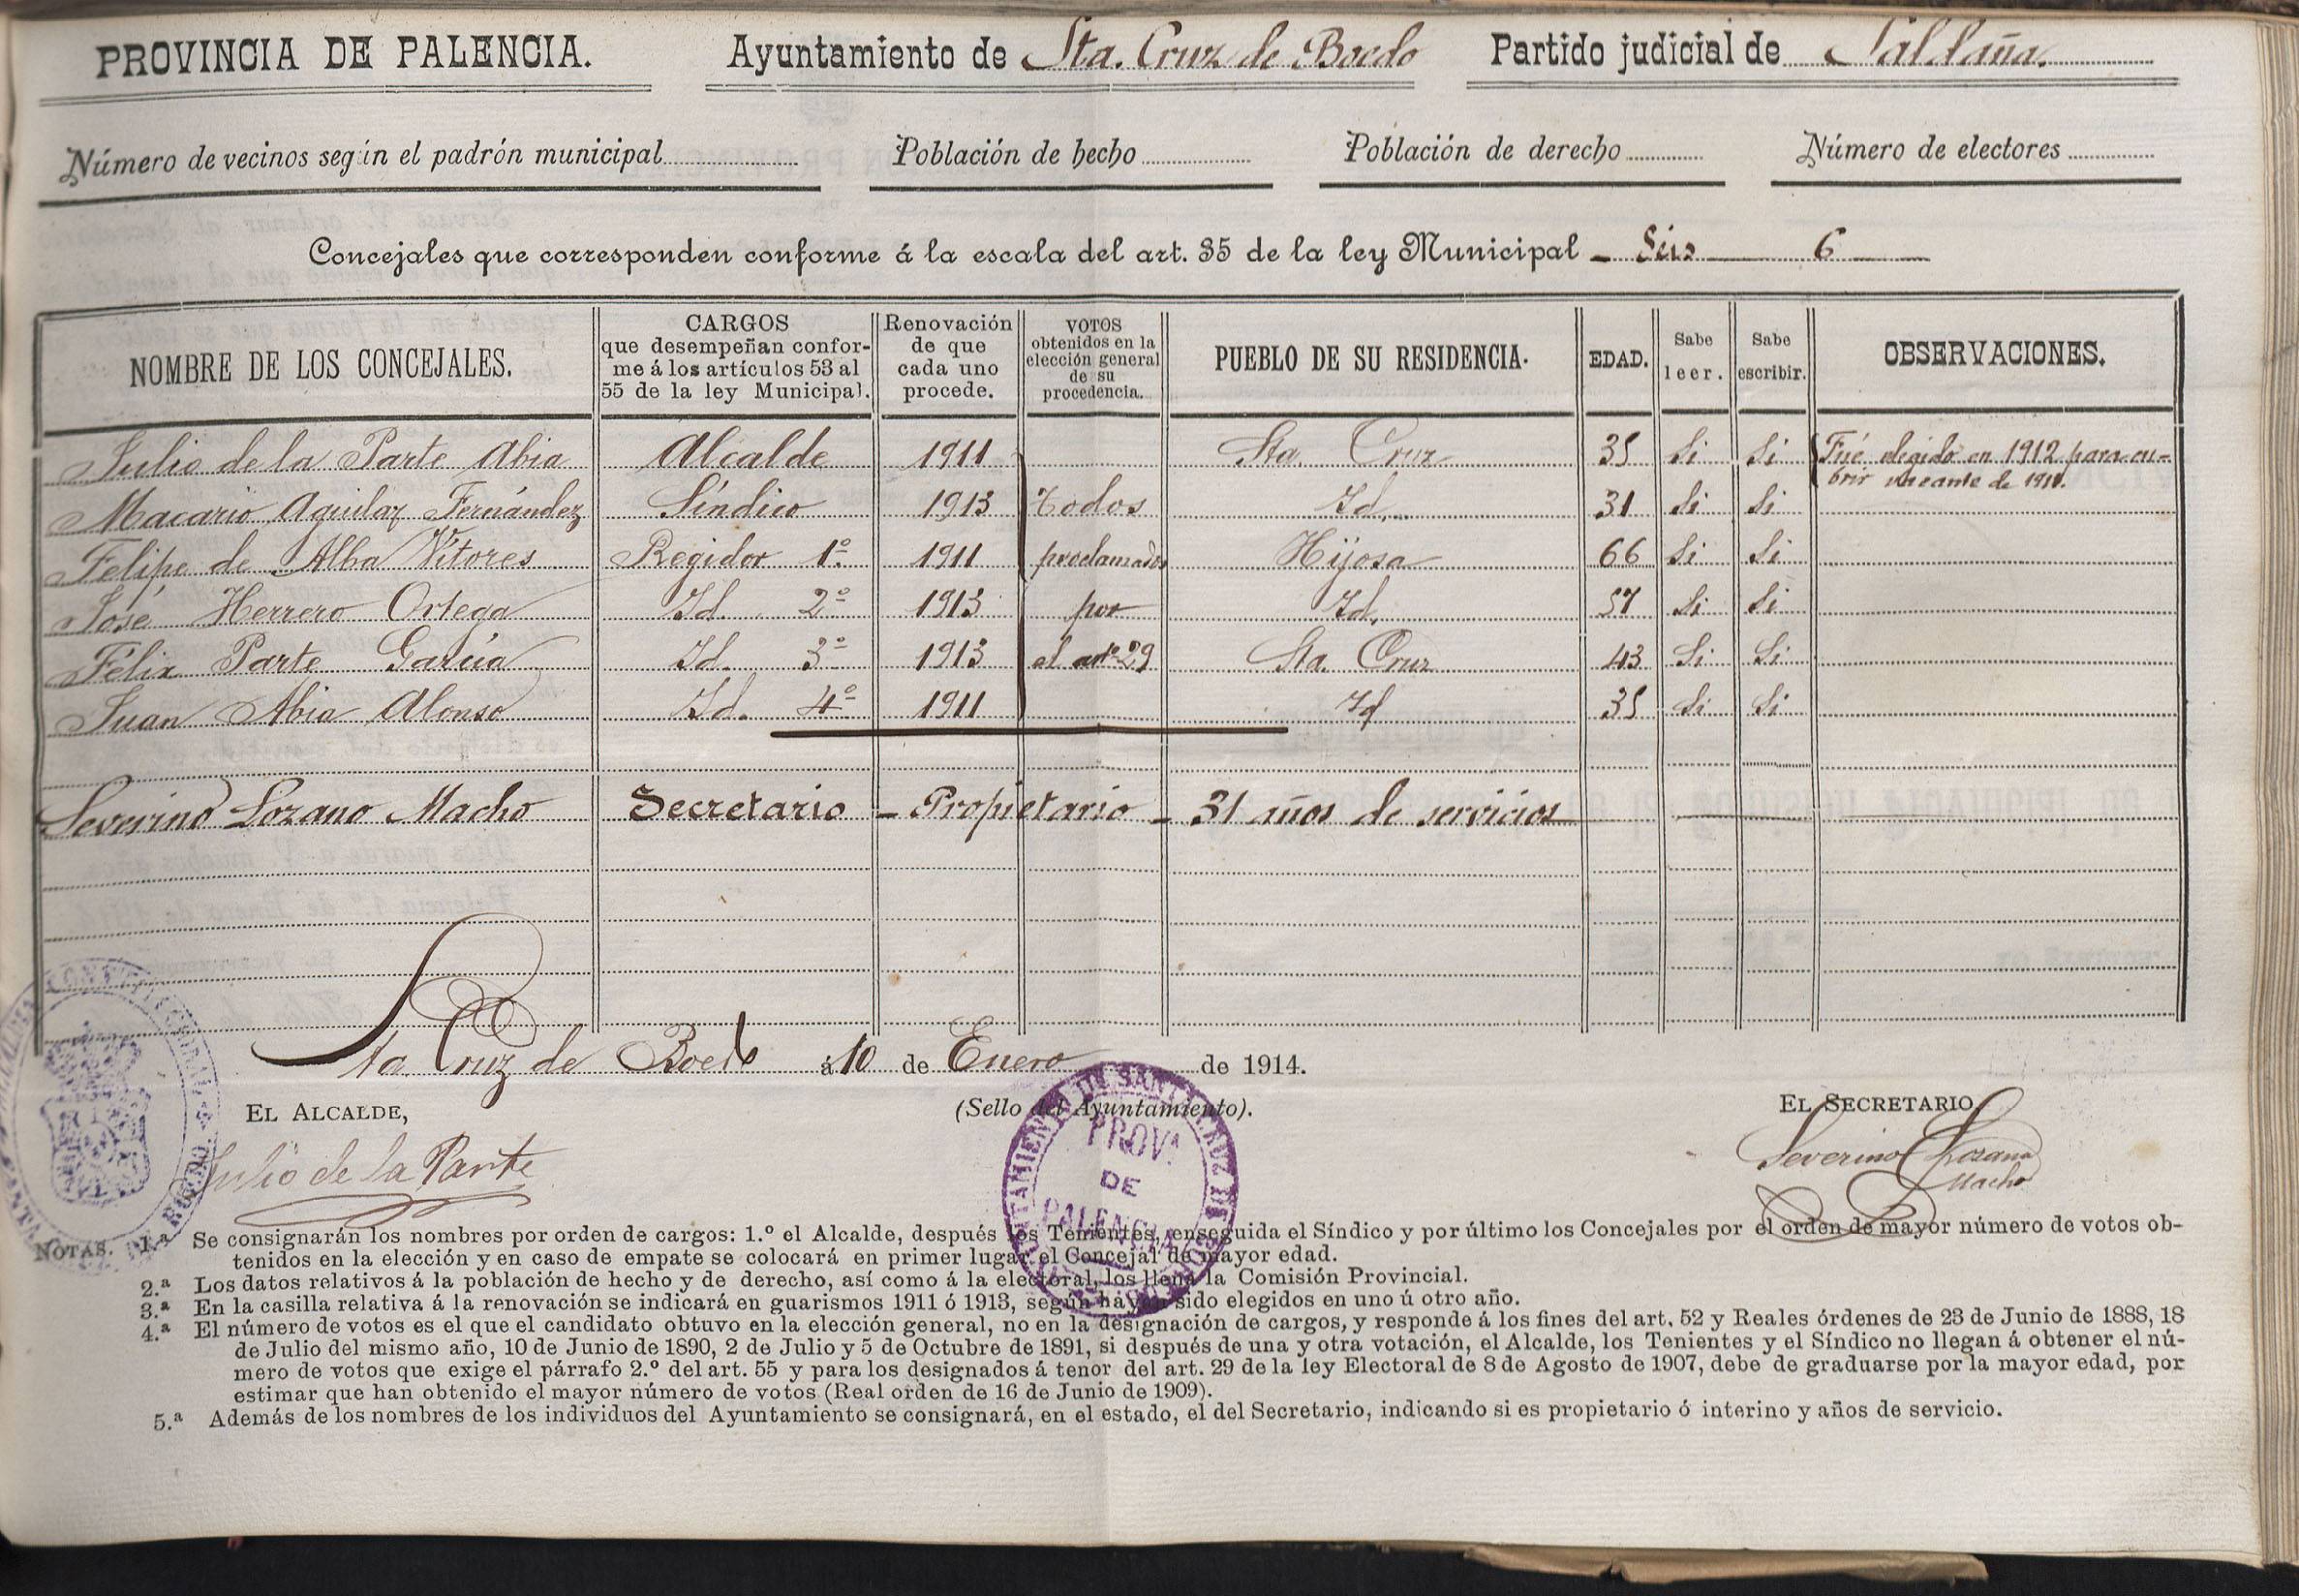 PROVINCIA DE PALENCIA. Ayuntamiento de Sta. Cruz de Boedo Partido judicial de Saldaña.
Número de vecinos según el padrón municipal Población de hecho Población de derecho Número de electores
Concejales que corresponden conforme á la escala del art. 35 de la ley Municipal - Séis 6
NOMBRE DE LOS CONCEJALES.
CARGOS
que desempeñan confor-
me á los artículos 53 al
55 de la ley Municipal.
Renovación
de que
cada uno
procede.
VOTOS
obtenidos en la
elección general
de su
procedencia.
PUEBLO DE SU RESIDENCIA.
EDAD.
Sabe
leer.
Sabe
escribir.
OBSERVACIONES.
Julio de la Parte Abia Alcalde 1911 Sta. Cruz 35 Si Si Fué elegido en 1912 para cu-
brir vacante de 1911.
Macario Aguilar Fernández Síndico 1913 Todos Id. 31 Si Si
Felipe de Alba Vitores Regidor 1º 1911 proclamados Hijosa 66 Si Si
José Herrero Ortega Id. 2º 1913 por Id. 57 Si Si
Félix Parte García Id. 3º 1913 el artº 29 Sta. Cruz 43 Si Si
Juan Abia Alonso Id. 4º 1911 Id 35 Si Si
Severino Lozano Macho Secretario - Propietario - 31 años de servicios
Sta. Cruz de Boedo á 10 de Enero de 1914.
EL ALCALDE, (Sello del Ayuntamiento). EL SECRETARIO,
Julio de la Parte
Severino Lozano
Macho
AYUNTAMIENTO DE SANTA CRUZ DE BOEDO
PROVª
DE
PALENCIA
NOTAS. 1.ª Se consignarán los nombres por orden de cargos: 1.º el Alcalde, después los Tenientes, enseguida el Síndico y por último los Concejales por el orden de mayor número de votos ob-
tenidos en la elección y en caso de empate se colocará en primer lugar el Concejal de mayor edad.
2.ª Los datos relativos á la población de hecho y de derecho, así como á la electoral, los llena la Comisión Provincial.
3.ª En la casilla relativa á la renovación se indicará en guarismos 1911 ó 1913, según hayan sido elegidos en uno ú otro año.
4.ª El número de votos es el que el candidato obtuvo en la elección general, no en la designación de cargos, y responde á los fines del art. 52 y Reales órdenes de 23 de Junio de 1888, 18
de Julio del mismo año, 10 de Junio de 1890, 2 de Julio y 5 de Octubre de 1891, si después de una y otra votación, el Alcalde, los Tenientes y el Síndico no llegan á obtener el nú-
mero de votos que exige el párrafo 2.º del art. 55 y para los designados á tenor del art. 29 de la ley Electoral de 8 de Agosto de 1907, debe de graduarse por la mayor edad, por
estimar que han obtenido el mayor número de votos (Real orden de 16 de Junio de 1909).
5.ª Además de los nombres de los individuos del Ayuntamiento se consignará, en el estado, el del Secretario, indicando si es propietario ó interino y años de servicio.